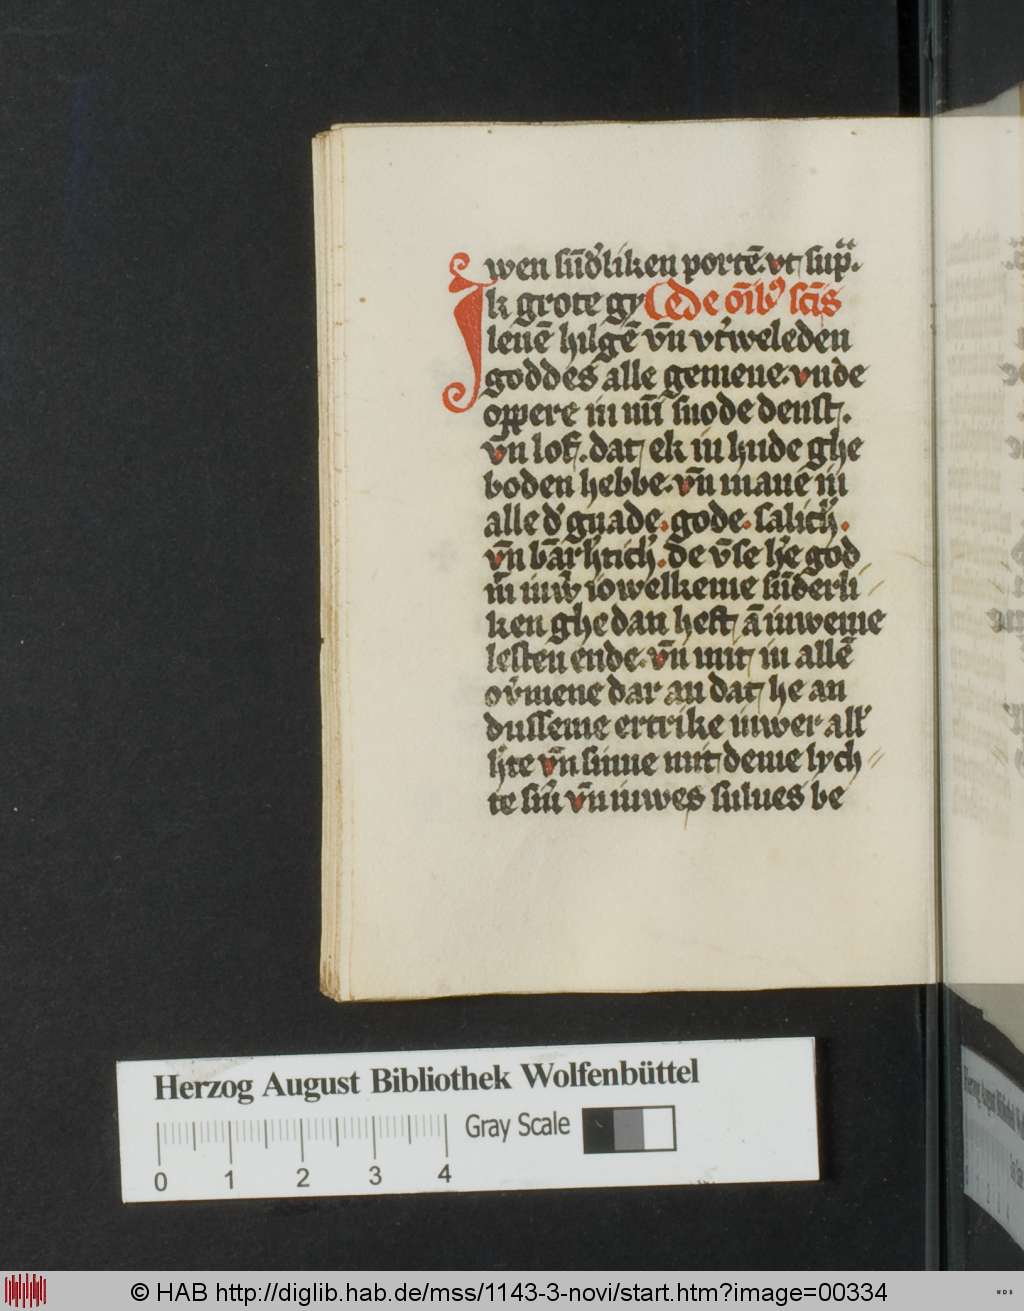 wen sūd'liken portē. vt sup̄.
Ik grote gy De oīb9 sctīs
leuē hilgē vn̄ vt'weleden
goddes alle gemene. vnde
oppere iu mī snode denst.
vn̄ lof. dat ek iu hude ghe
boden hebbe. vn̄ mane iu
alle d' gnade. gode. salich'.
vn̄ bārh'tich'. de vn̄se h'e god
m̄ iuw' iowelkeme sūderli
ken ghe dan heft ā iuweme
lesten ende. vn̄ mit iu allē
ov'mene dar an dat he an
dusseme ertrike iuwer all'
h'te vn̄ sinne mit deme lych
te sin' vn̄ iuwes sulues be
Herzog August Bibliothek Wolfenbüttel
Gray Scale
0 1 2 3 4
© HAB http://diglib.hab.de/mss/1143-3-novi/start.htm?image=00334